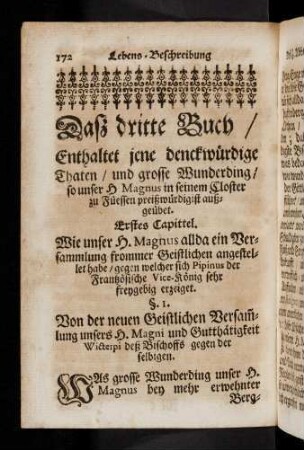 172 Lebens-Beschreibung
Daß dritte Buch /
Enthaltet jene denckwürdige
Thaten / und grosse Wunderding /
so unser H Magnus in seinem Closter
zu Füessen preißwürdigist auß-
geübet.
Erstes Capittel.
Wie unser H. Magnus allda ein Ver-
sammlung frommer Geistlichen angestel-
let habe / gegen welcher sich Pipinus der
Frantzösische Vice-König sehr
freygebig erzeiget.
§. 1.
Von der neuen Geistlichen Versam-
lung unsers H. Magni und Gutthätigkeit
Wicterpi deß Bischoffs gegen der
selbigen.
WAs grosse Wunderding unser H.
Magnus bey mehr erwehnter
Berg-